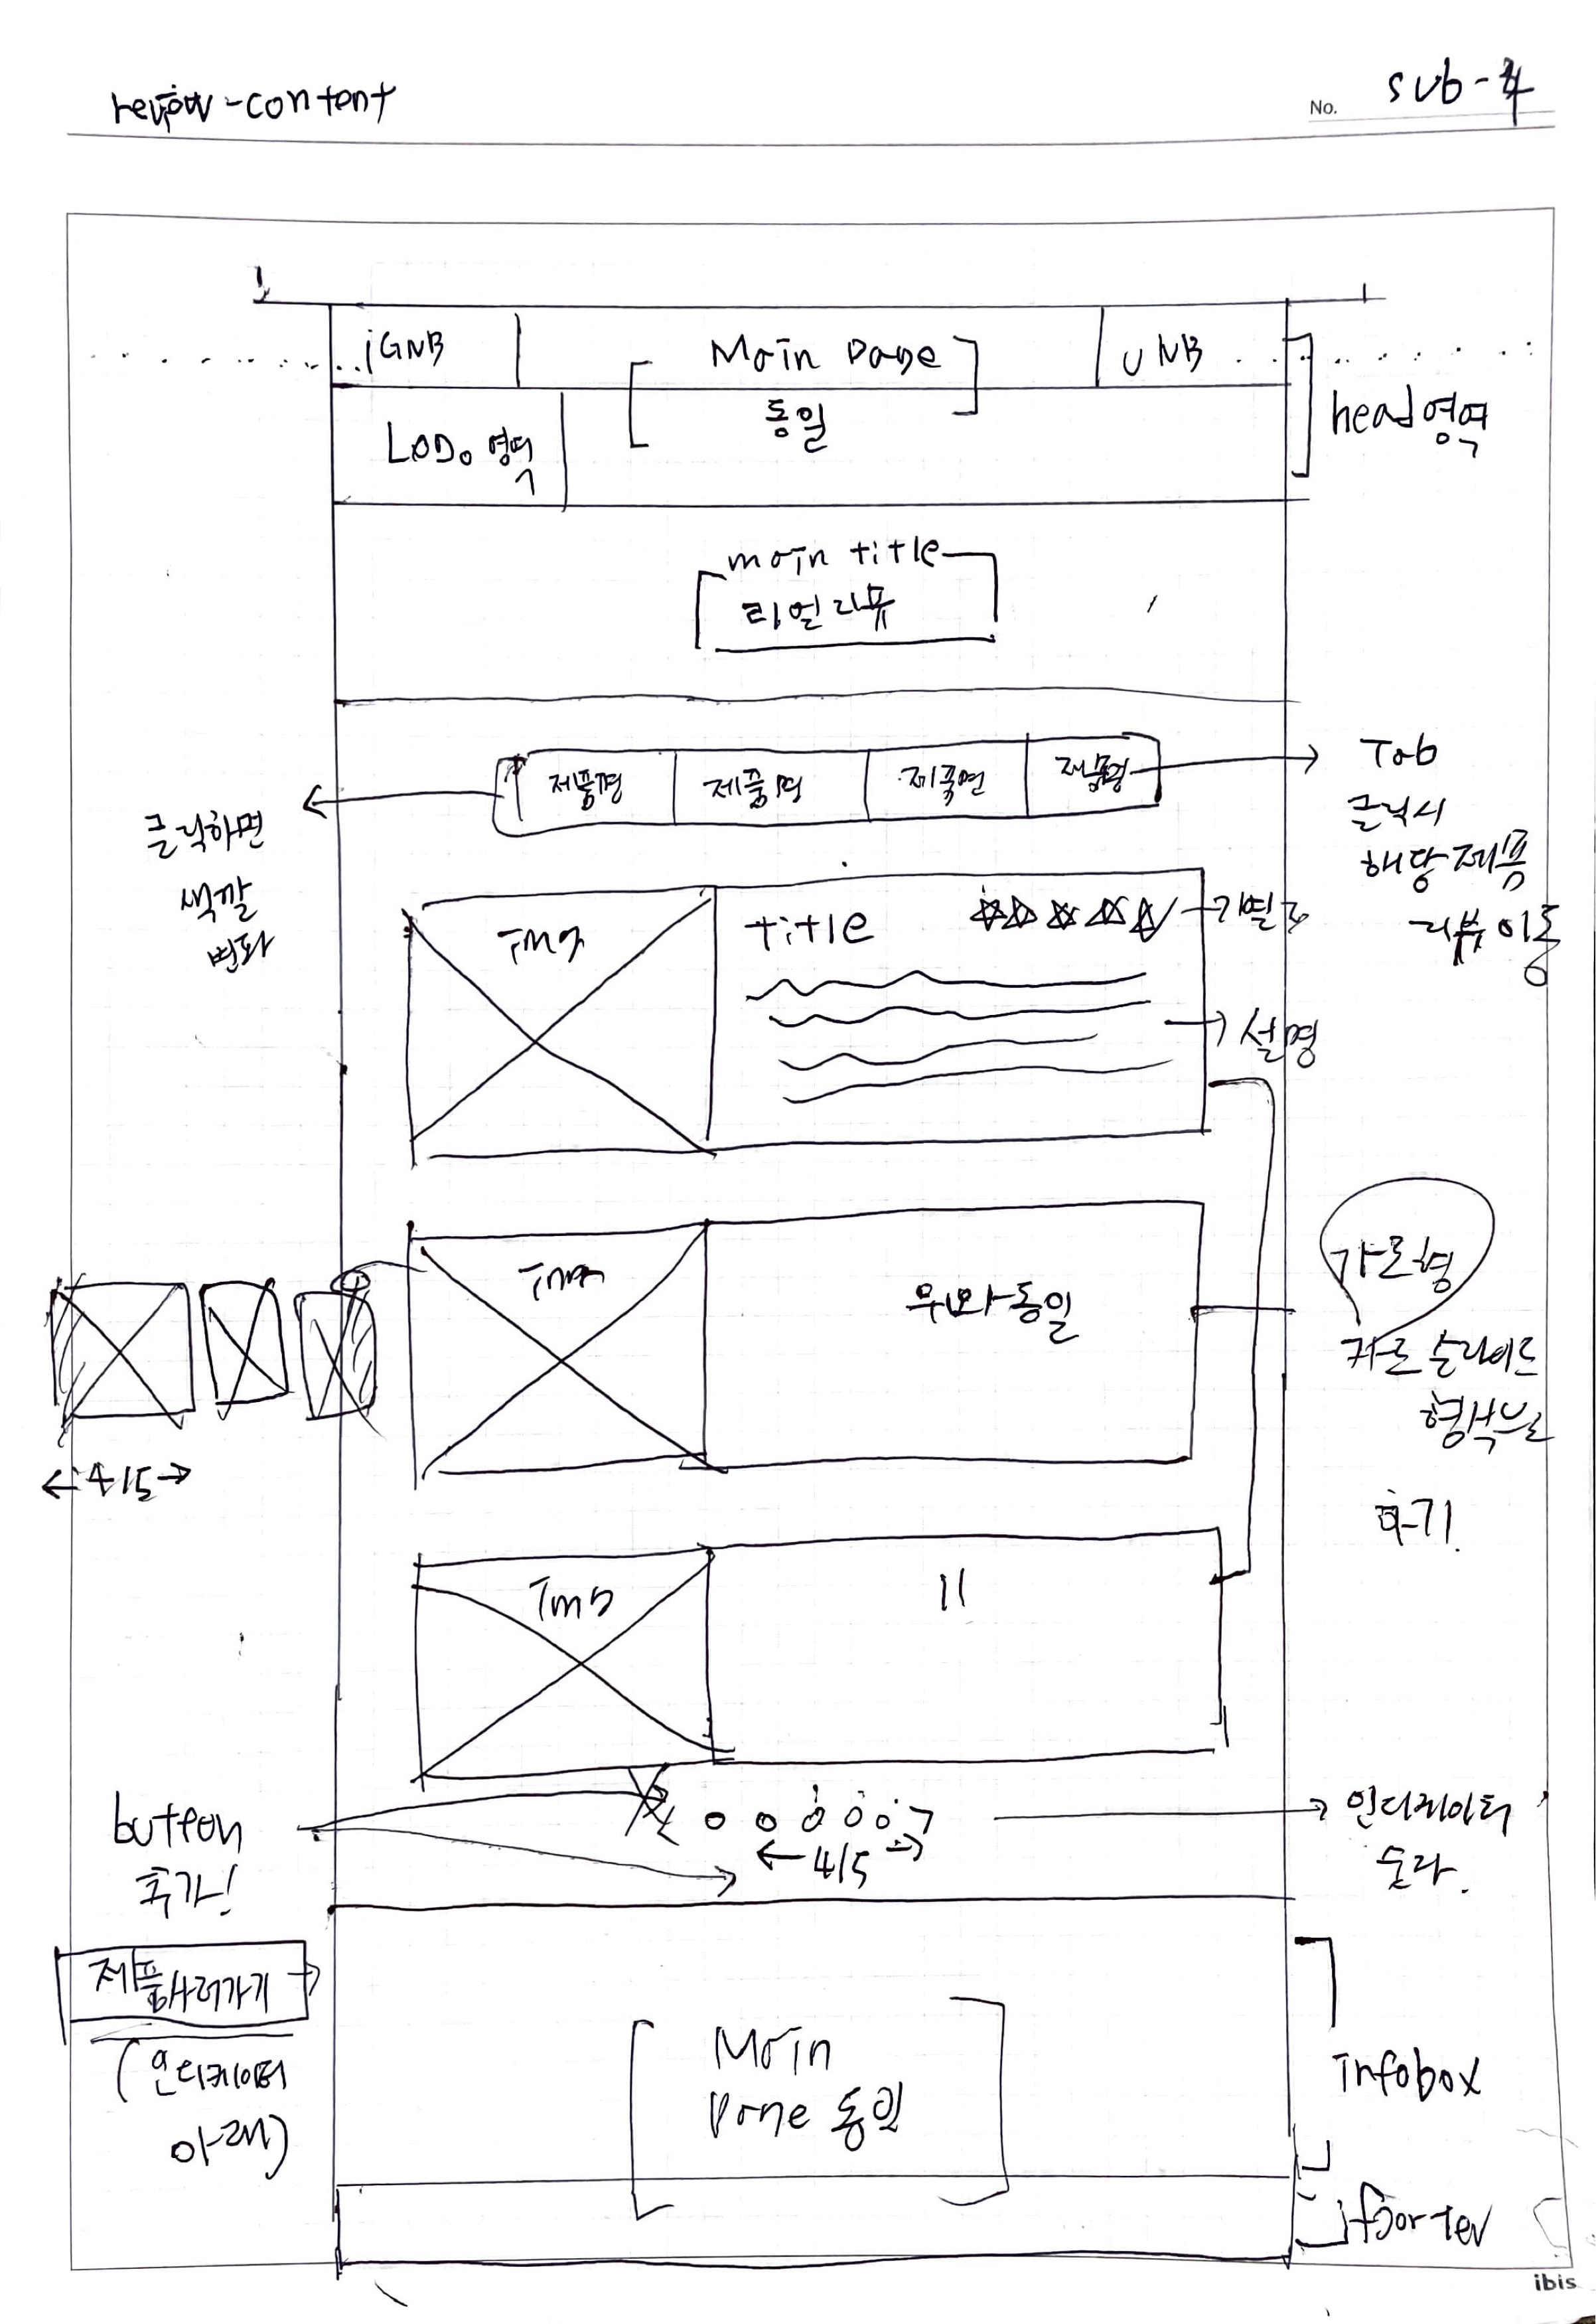 review-content
No. sub-4
GNB
Main Page
동일
UNB
head영역
LOGO 영역
main title
리얼리뷰
제품명
제품명
제품명
제품명
클릭하면
색깔
변화
Tab
클릭시
해당제품
리뷰 이동
Img
title
☆☆☆☆☆
설명
Img
위와 동일
가로형
가로 슬라이드
형식으로
후기
← 4/5 →
Img
11
< ○ ○ ○ ○ ○ >
← 4/5 →
button
추가!
인디케이터
제품사러가기
(인디케이터
아래)
Main
Page 동일
infobox
footer
ibis